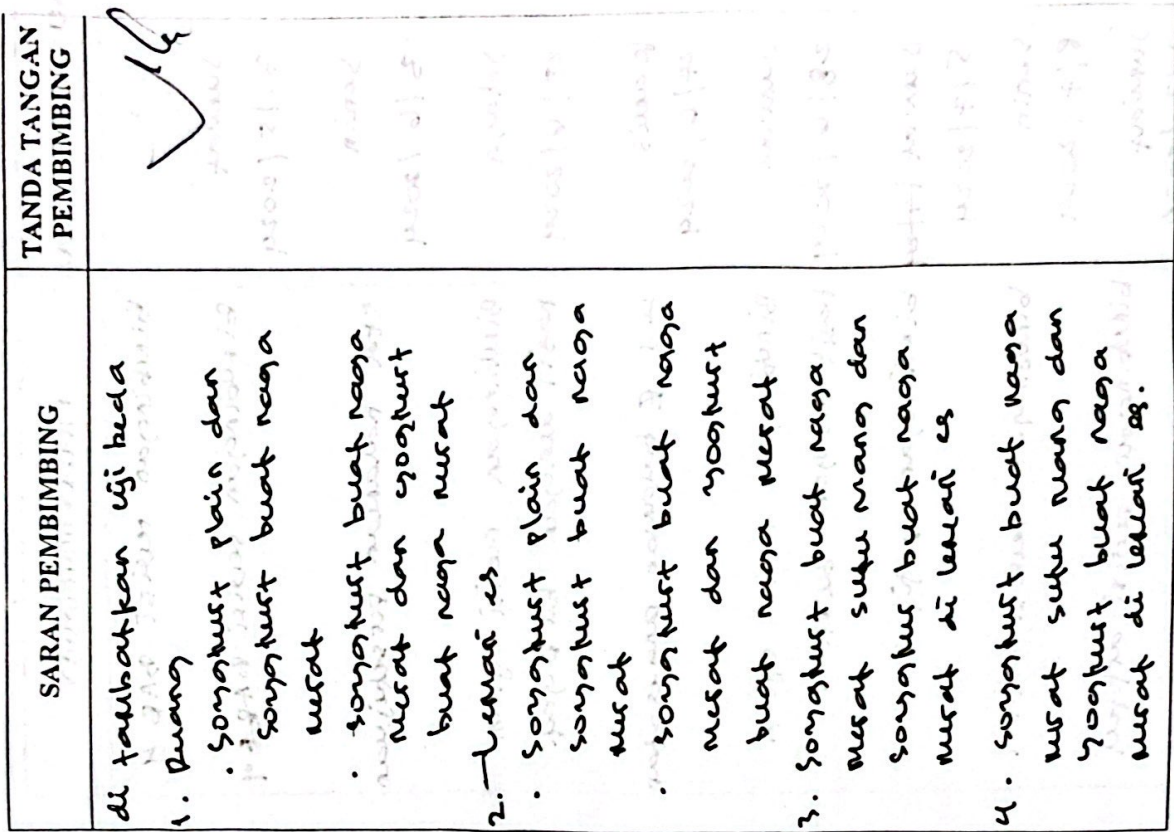 SARAN PEMBIMBING
TANDA TANGAN
PEMBIMBING
di tambahkan uji beda
1. Ruang
. Soyghurt plain dan
soyghurt buah naga
merah
. soyghurt buah naga
merah dan yoghurt
buah naga merah
2. Lemari es
. Soyghurt plain dan
soyghurt buah naga
merah
. soyghurt buah naga
merah dan yoghurt
buah naga merah
3. Soyghurt buah naga
merah suhu ruang dan
soyghur buah naga
merah di lemari es
4. soyghurt buah naga
merah suhu ruang dan
yoghurt buah naga
merah di lemari es.